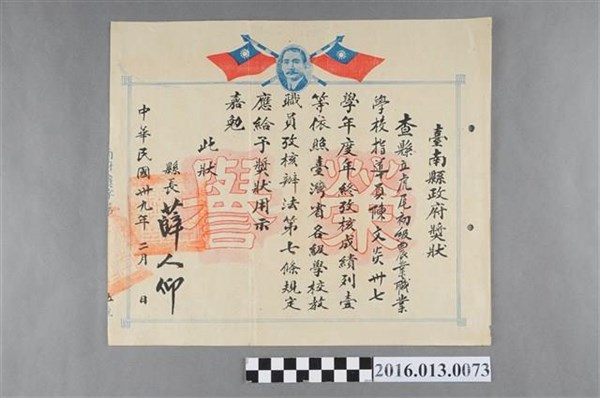 臺南縣政府獎狀
查縣立虎尾初級農業職業
學校指導員陳文炎卅七
學年度年終攷核成績列壹
等依照臺灣省各級學校教
職員攷核辦法第七條規定
應給予獎狀用示
嘉勉
此狀
縣長 薛人仰
中華民國卅九年二月 日
榮譽
2016.013.0073